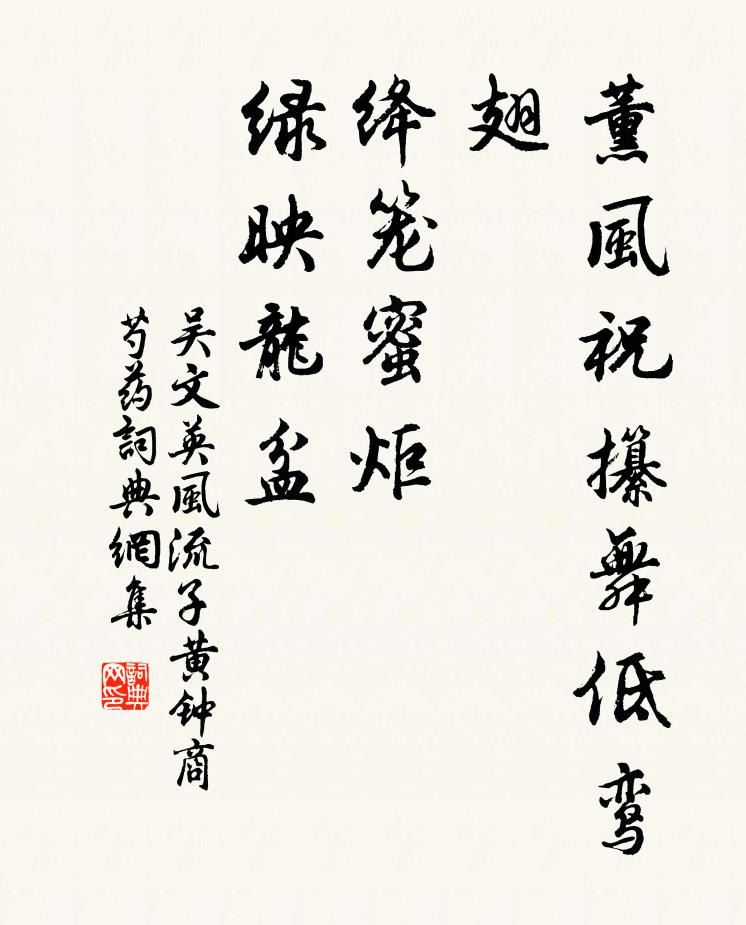 薰風祝攥舞低鸾
翅
绛笼蜜炬
绿映龍盆
吴文英風流子黄钟商
芍药詞典網集
詞典网印